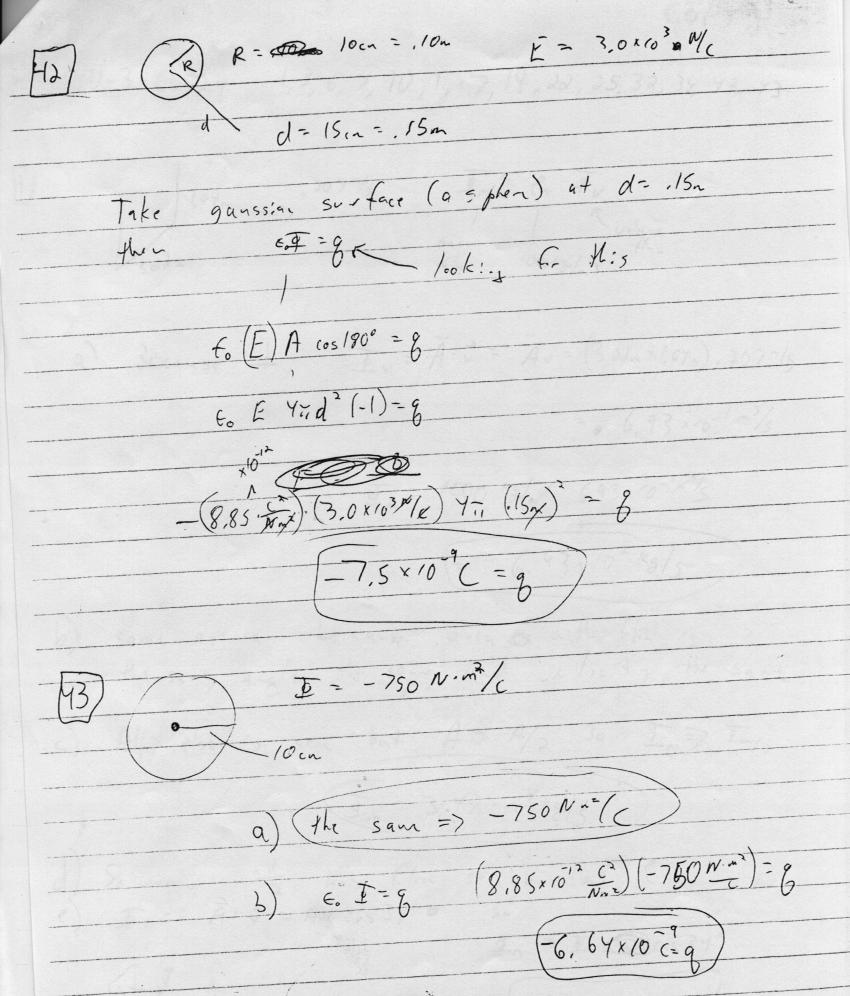 42 R R = 10cm = .10m E = 3.0×10³ N/C
d d = 15cm = .15m
Take gaussian surface (a sphere) at d = .15m
then ε₀Φ = q ← looking for this
ε₀ (E) A cos180° = q
ε₀ E 4πd² (-1) = q
-(8.85 ×10⁻¹² C²/Nm²)·(3.0×10³ N/C) 4π (.15m)² = q
-7.5×10⁻⁹ C = q
43 Φ = -750 N·m²/C
10cm
a) the same => -750 Nm²/C
b) ε₀ Φ = q (8.85×10⁻¹² C²/Nm²)(-750 N·m²/C) = q
-6.64×10⁻⁹ C = q